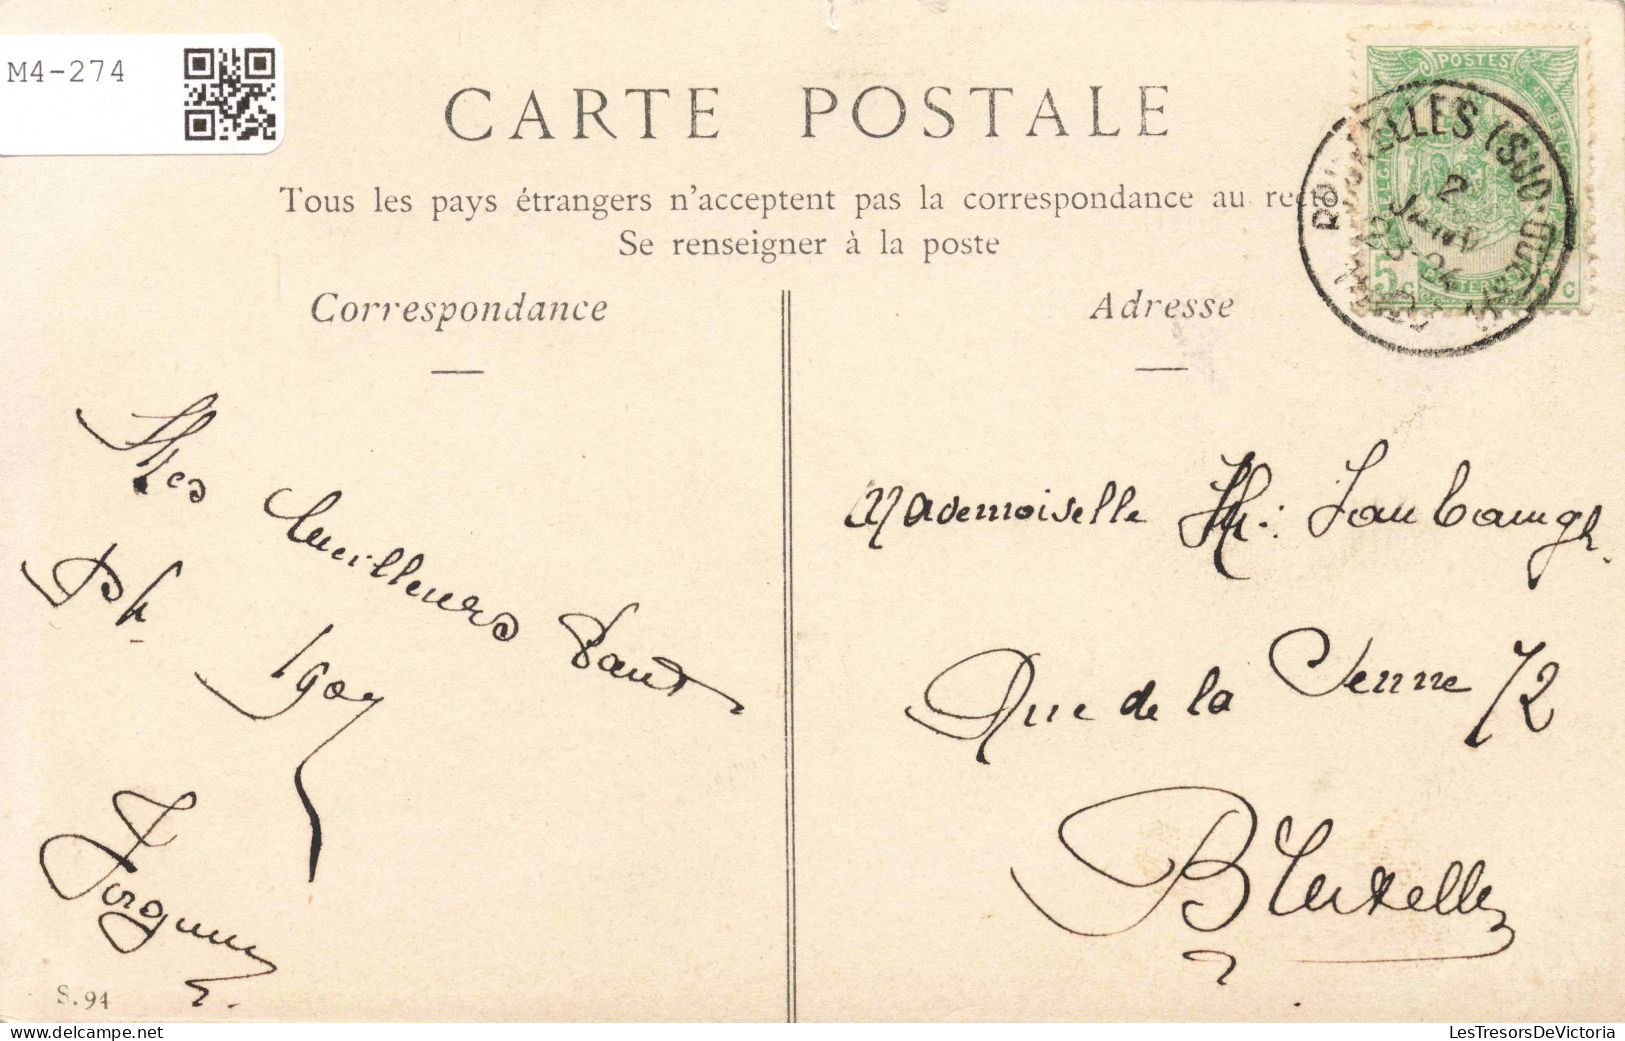 M4-274
CARTE POSTALE
Tous les pays étrangers n'acceptent pas la correspondance au recto
Se renseigner à la poste
Correspondance
Adresse
POSTES
BRUXELLES (SUD-
2
JANV
5 c
Mes meilleurs
1907
Mademoiselle
Rue de la Senne 72
Bruxelles
S.94
LesTresorsDeVictoria